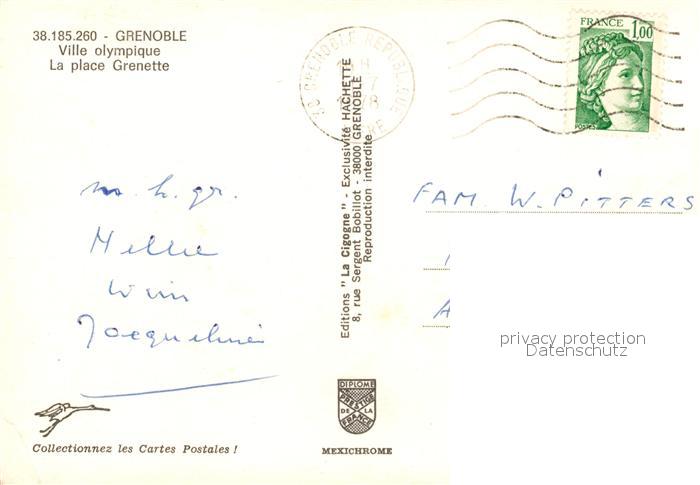 38.185.260 - GRENOBLE
Ville olympique
La place Grenette
38 GRENOBLE REPUBLIQUE
FRANCE 1,00
POSTES
m. h. gr.
Mellie
Wim
Jacqueline
Editions "La Cigogne" - Exclusivité HACHETTE
8, rue Sergent Bobillot - 38000 GRENOBLE
Reproduction interdite
FAM. W. PITTERS
A
privacy protection
Datenschutz
DIPLOME
PRESTIGE
DE LA
FRANCE
MEXICHROME
Collectionnez les Cartes Postales !